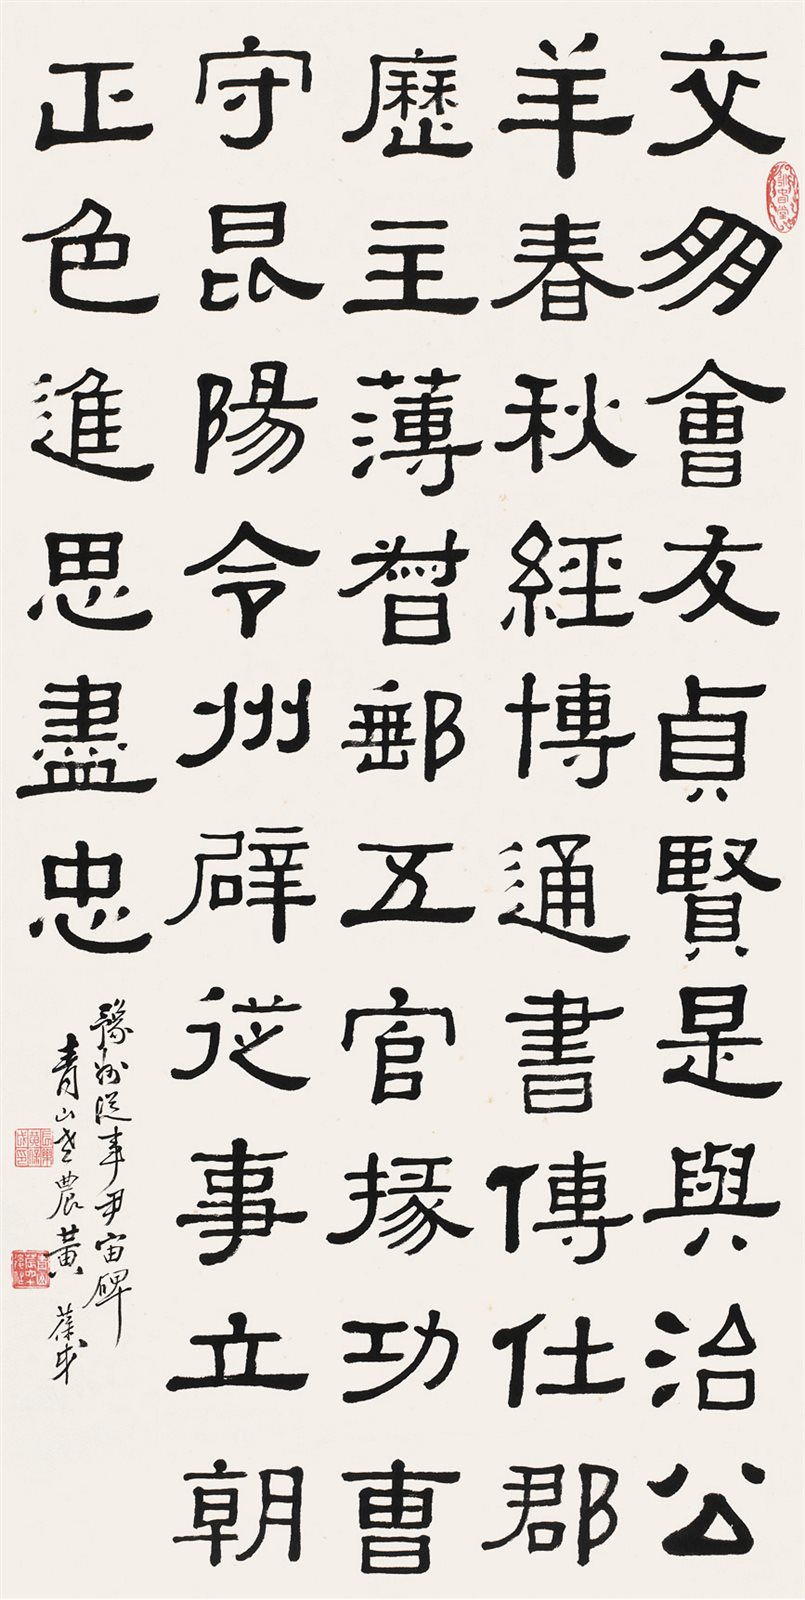 交朋會友貞賢是與治公
羊春秋經博通書傳仕郡
歷主薄督郵五官掾功曹
守昆陽令州辟從事立朝
正色進思盡忠
豫州從事尹宙碑
青山老農黃葆戉